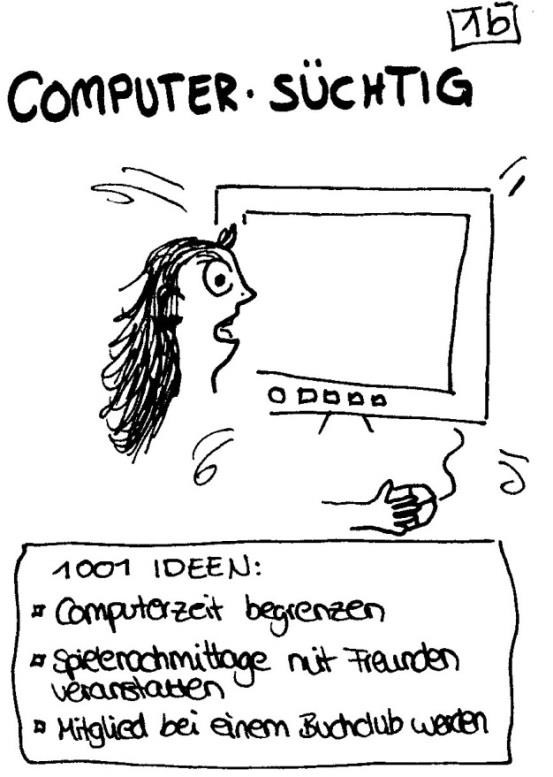 1b
COMPUTER·SÜCHTIG
1001 IDEEN:
¤ Computerzeit begrenzen
¤ Spielenachmittage mit Freunden
veranstalten
¤ Mitglied bei einem Buchclub werden